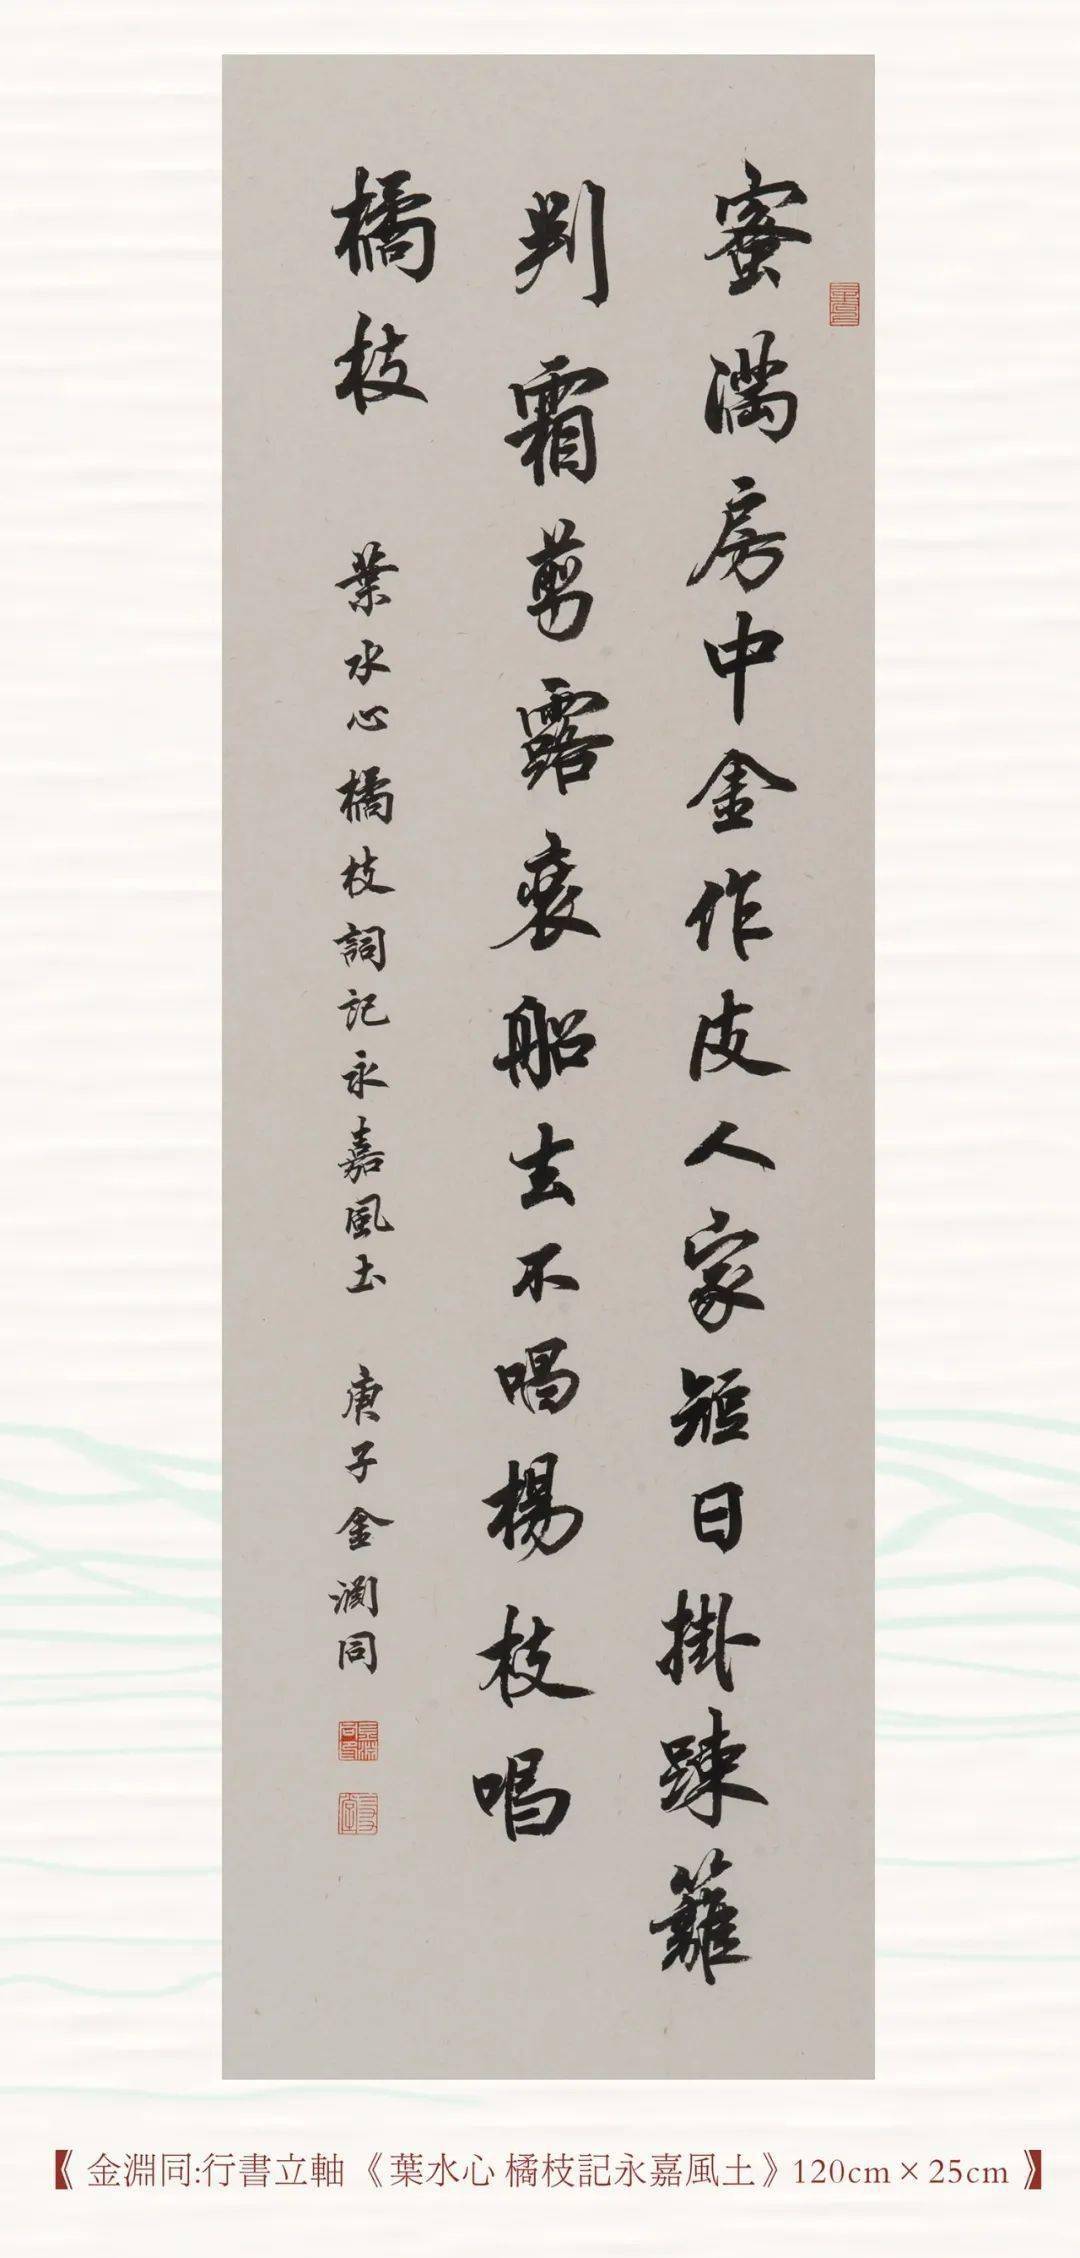 蜜滿房中金作皮人家短日掛踈籬
判霜剪露裝船去不唱楊枝唱
橘枝
葉水心橘枝詞記永嘉風土 庚子金淵同
【金淵同:行書立軸《葉水心 橘枝記永嘉風土》120cm×25cm】